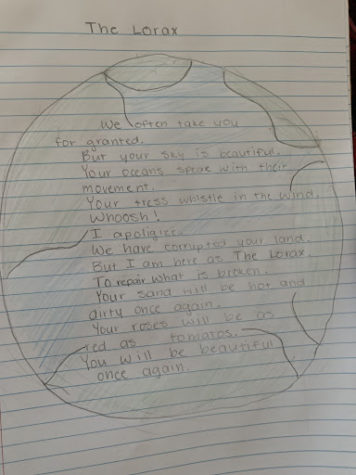 The Lorax
We often take you
for granted.
But your sky is beautiful.
Your oceans speak with their
movement.
Your tress whistle in the wind.
Whoosh!
I apoligize.
We have corrupted your land.
But I am here as The Lorax.
To repair what is broken.
Your sand will be hot and
dirty once again.
Your roses will be as
red as tomatos.
You will be beautiful
once again.